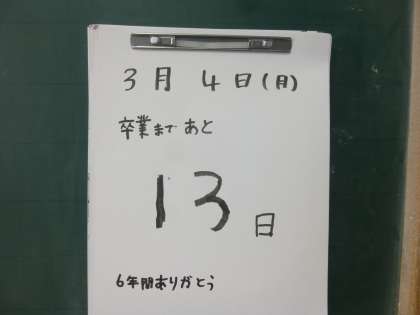 3月 4日(月)
卒業まで あと
13日
6年間ありがとう